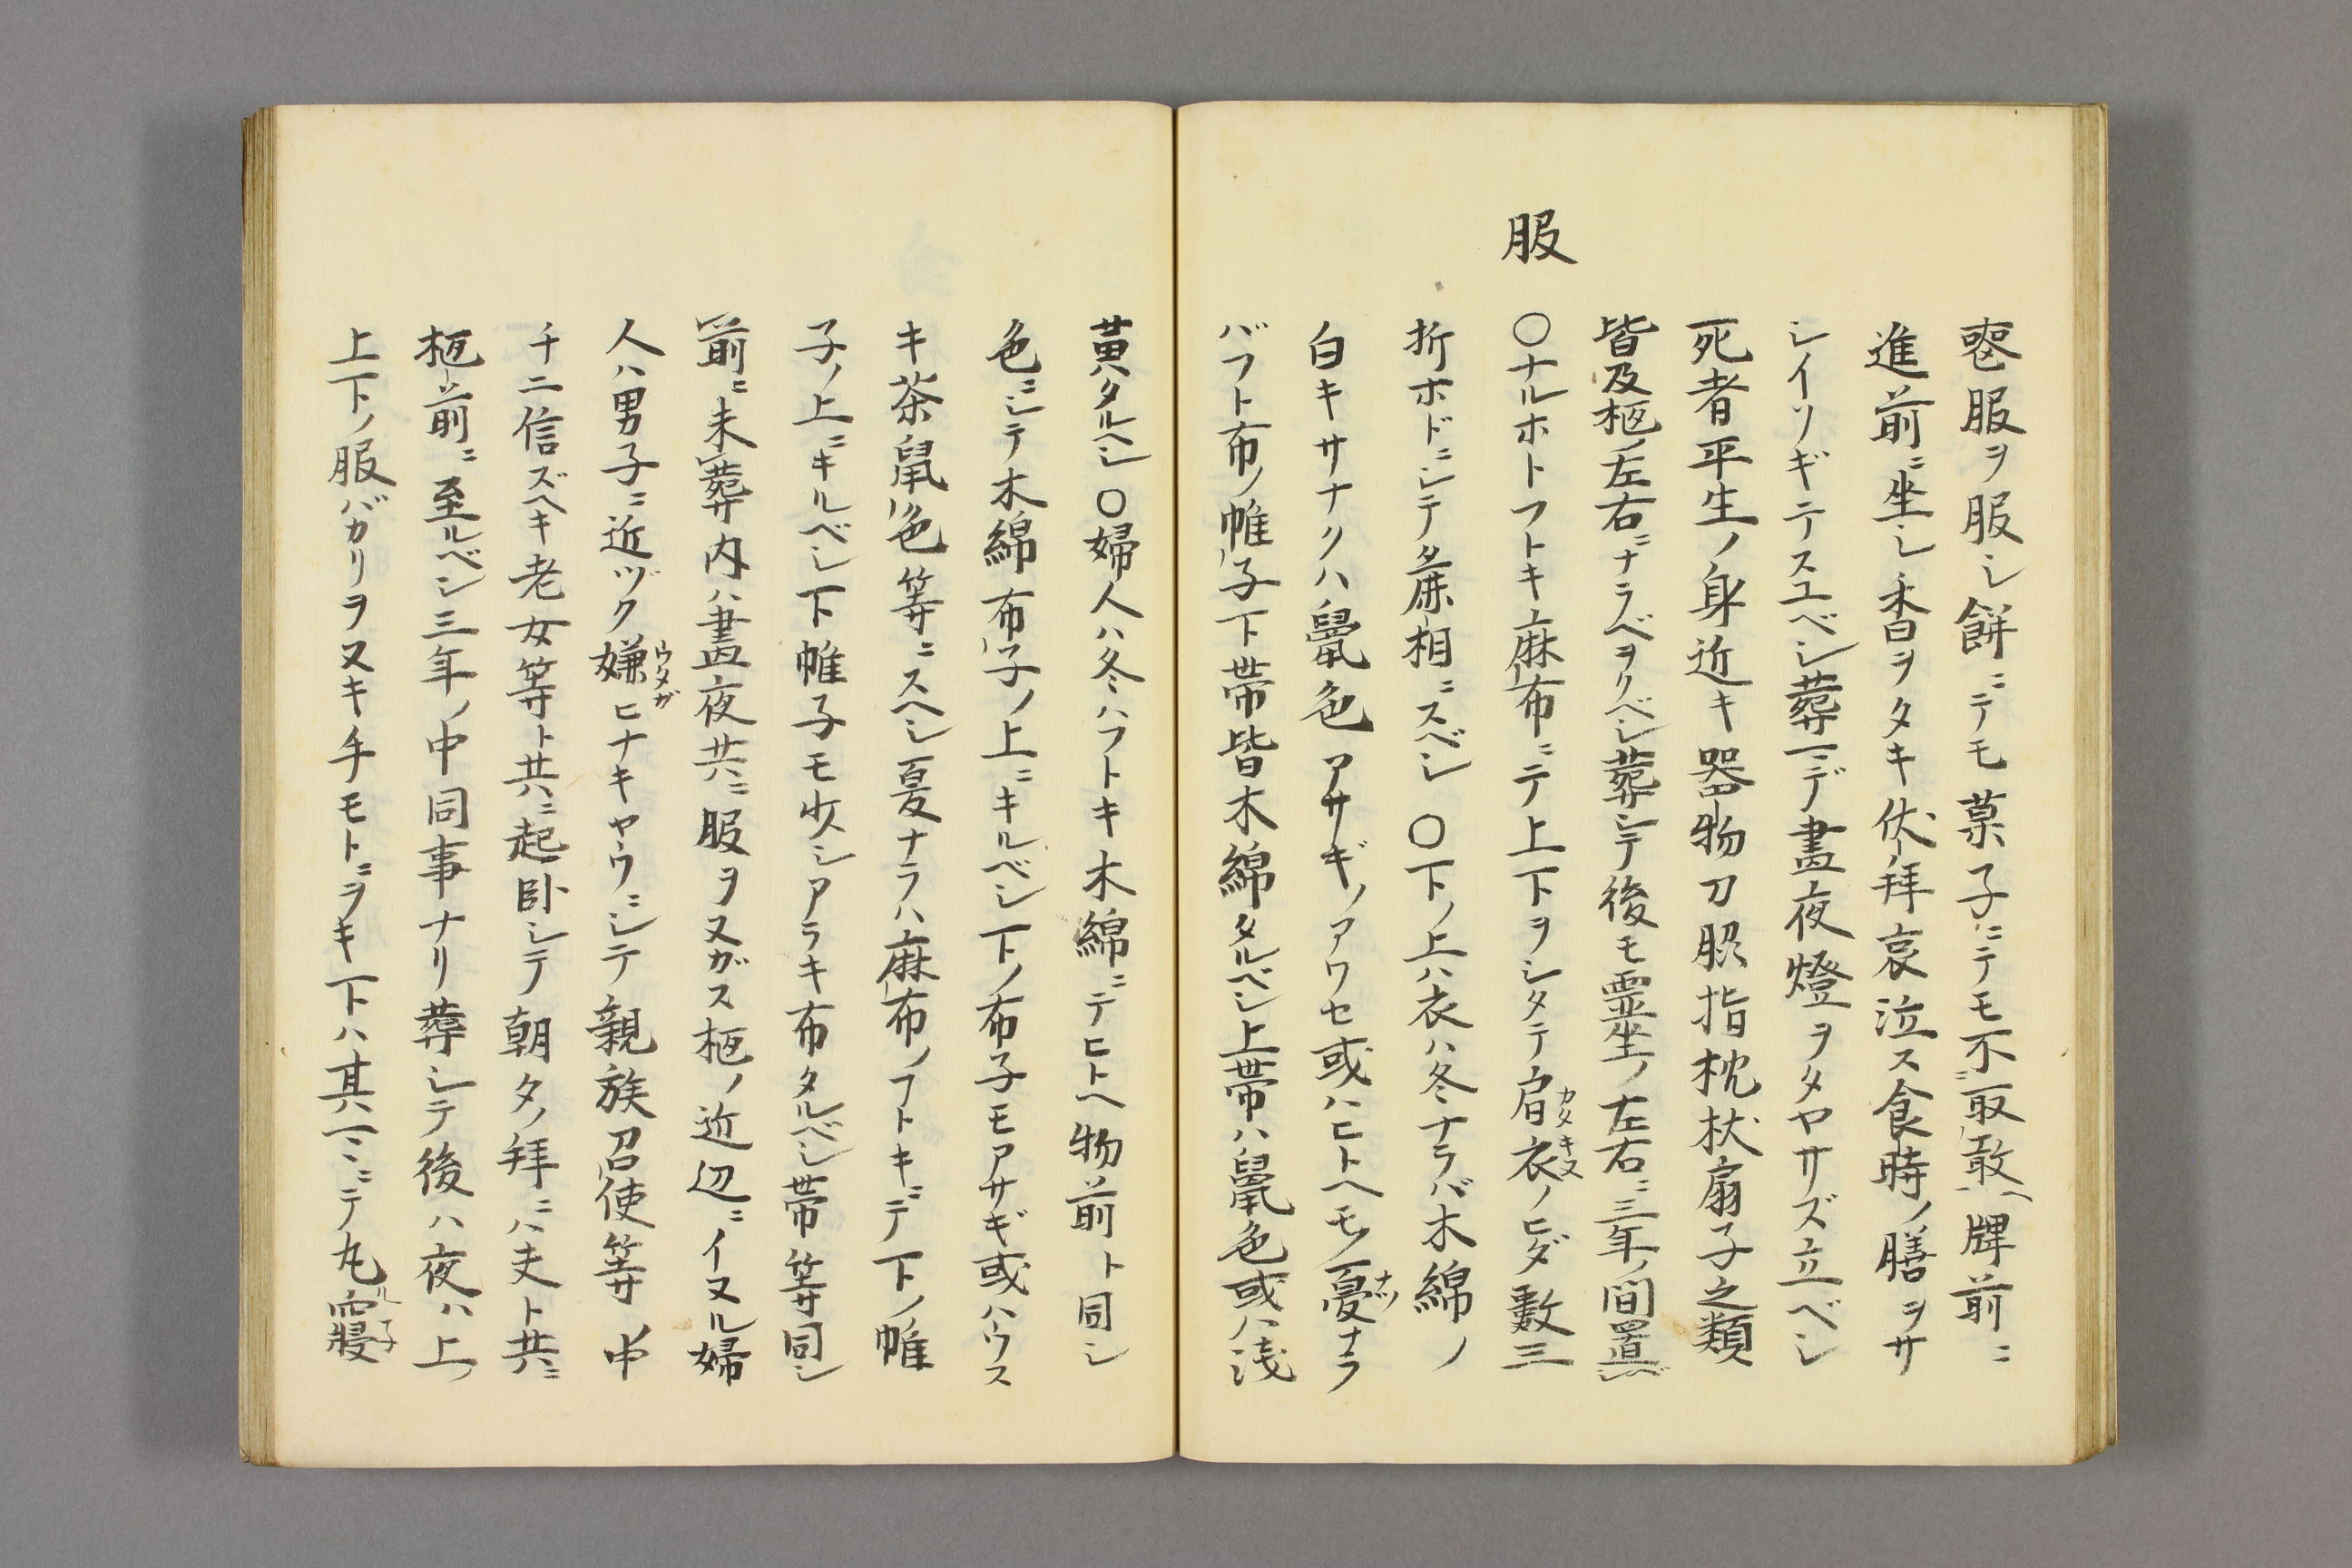 喪服ヲ服シ餅ニテモ菓子ニテモ不取敢牌前ニ
進前ニ坐シ香ヲタキ伏拜哀泣ス食時ノ膳ヲサ
シイソギテスユベシ葬マデ晝夜燈ヲタヤサズ立ベシ
死者平生ノ身近キ器物刀脇指枕杖扇子之類
皆及柩ノ左右ニナラベヲクベシ葬シテ後モ霊坐ノ左右ニ三年ノ間置ベシ
服
〇ナルホトフトキ麻布ニテ上下ヲシタテ肩衣ノヒダ數三
カタキヌ
折ホドニシテ麁相ニスベシ〇下ノ上ハ衣ハ冬ナラバ木綿ノ
白キサナクハ鼠色アサギノアワセ或ハヒトヘモノ夏ナラ
ナツ
バフト布ノ帷子下帯皆木綿タルベシ上帯ハ鼠色或ハ淺
黄タルヘシ〇婦人ハ冬ハフトキ木綿ニテヒトヘ物前ト同シ
色ニシテ木綿布子ノ上ニキルベシ下ノ布子モアサギ或ハウス
キ茶鼠色等ニスヘシ夏ナラハ麻布ノフトキニテ下ノ帷
子ノ上ニキルベシ下帷子モ少シアラキ布タルベシ帯等同シ
前ニ未葬内ハ晝夜共ニ服ヲヌガス柩ノ近辺ニイヌル婦
人ハ男子ニ近ヅク嫌ヒナキヤウニシテ親族召使等ノ中
ウタガ
チニ信ズヘキ老女等ト共ニ起臥シテ朝夕ノ拜ニハ夫ト共ニ
柩前ニ至ルベシ三年ノ中同事ナリ葬シテ後ハ夜ハ上
上下ノ服バカリヲヌキ手モトニヲキ下ハ其マヽニテ丸寢
ルネ